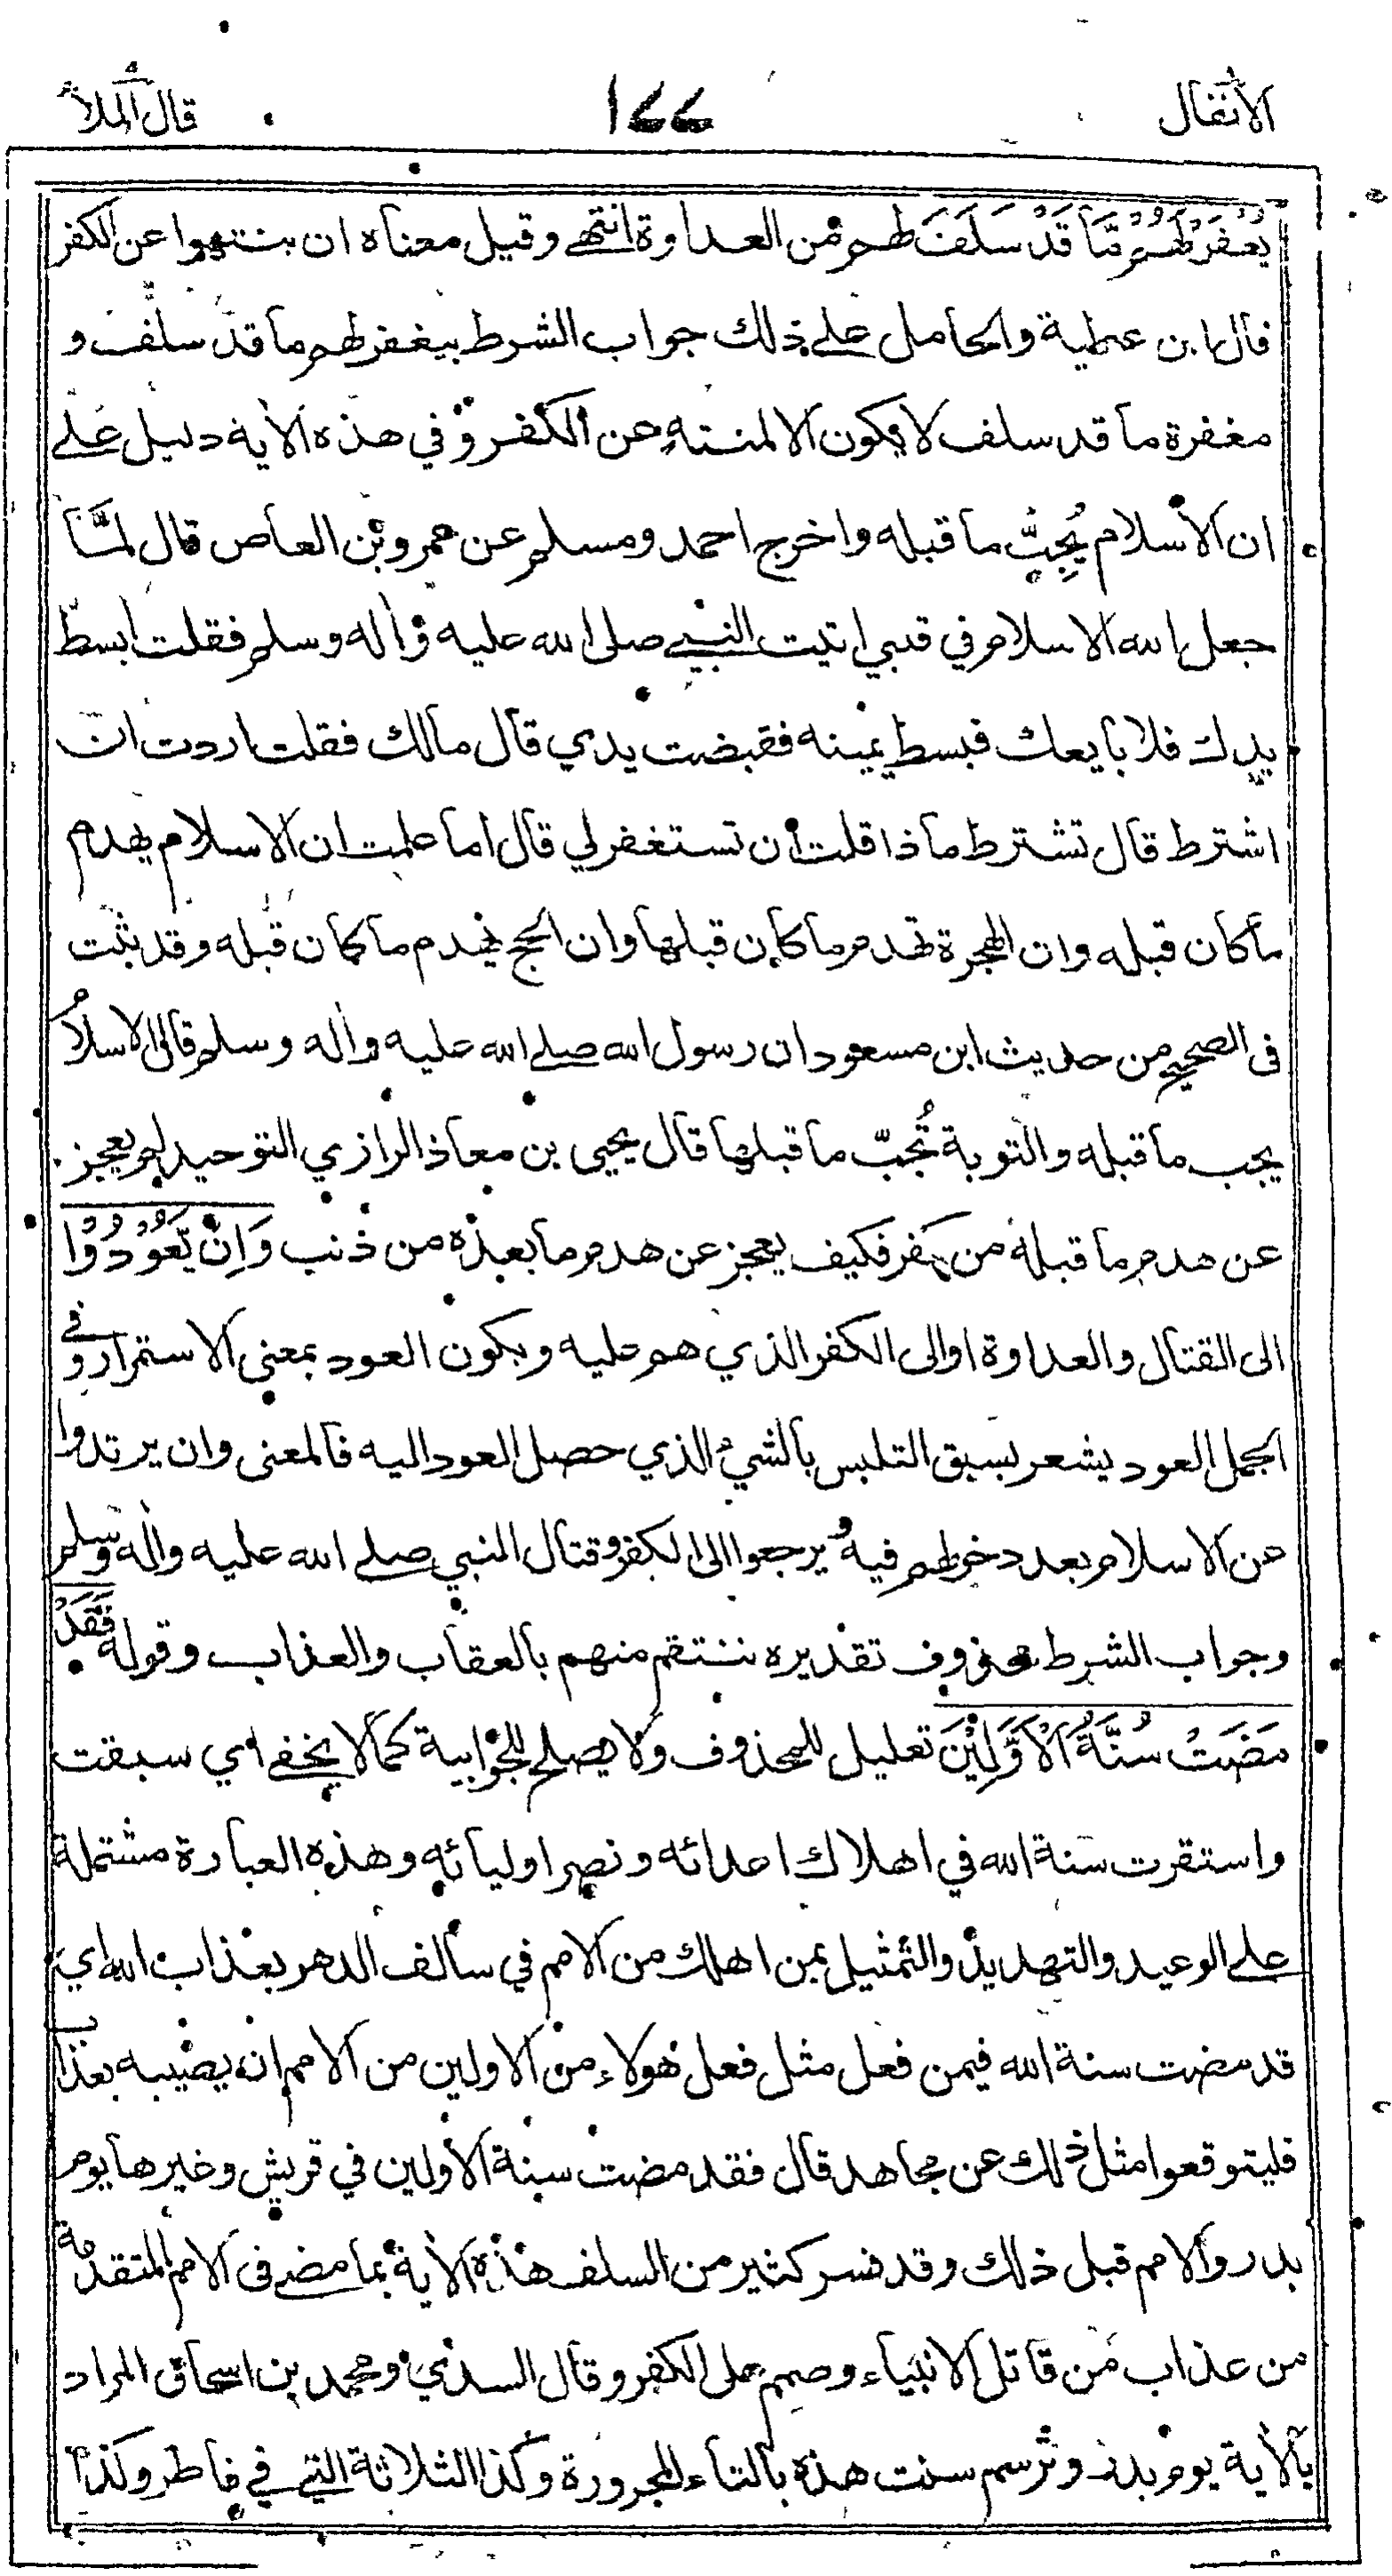 الأنفال ١٧٧ قال الملأ
يُغْفَرْ لَهُمْ مَّا قَدْ سَلَفَ لهم من العداوة انتهى وقيل معناه ان ينتهوا عن الكفر
قال ابن عطية والحامل على ذلك جواب الشرط بيغفر لهم ما قد سلف و
مغفرة ما قد سلف لا يكون الا لمنتهٍ عن الكفر وفي هذه الآية دليل على
ان الاسلام يُجبّ ما قبله واخرج احمد ومسلم عن عمرو بن العاص قال لمّا
جعل الله الاسلام في قلبي اتيت النبي صلى الله عليه وآله وسلم فقلت ابسط
يدك فلا بايعك فبسط يمينه فقبضت يدي قال مالك فقلت اردت ان
اشترط قال تشترط ماذا قلت أن تستغفر لي قال اما علمت ان الاسلام يهدم
ما كان قبله وان الهجرة تهدم ما كان قبلها وان الحج يهدم ما كان قبله وقد ثبت
فى الصحيح من حديث ابن مسعود ان رسول الله صلى الله عليه وآله وسلم قال الاسلام
يجب ما قبله والتوبة تُجبّ ما قبلها قال يحيى بن معاذ الرازي التوحيد لم يعجز
عن هدم ما قبله من كفر فكيف يعجز عن هدم ما بعده من ذنب وَاِنْ يَّعُوْدُوْا
الى القتال والعداوة او الى الكفر الذي هم عليه ويكون العود بمعنى الاستمرار وفي
الجمل العود يشعر بسبق التلبس بالشيء الذي حصل العود اليه فالمعنى وان يرتدوا
عن الاسلام بعد دخولهم فيه يرجعوا الى الكفر وقتال النبي صلى الله عليه وآله وسلم
وجواب الشرط محذوف تقديره ننتقم منهم بالعقاب والعذاب وقوله فَقَدْ
مَضَتْ سُنَّةُ الْاَوَّلِيْنَ تعليل للمحذوف ولا يصلح للجوابية كما لا يخفى اي سبقت
واستقرت سنة الله في اهلاك اعدائه ونصر اوليائه وهذه العبارة مشتملة
على الوعيد والتهديد والتمثيل بمن اهلك من الامم في سالف الدهر بعذاب الله اي
قد مضت سنة الله فيمن فعل مثل فعل هؤلاء من الاولين من الامم ان يصيبه بعذاب
فليتوقعوا مثل ذلك عن مجاهد قال فقد مضت سنة الأولين في قريش وغيرها يوم
بدر والامم قبل ذلك وقد فسر كثير من السلف هذه الآية بما مضى فى الامم المتقدمة
من عذاب من قاتل الانبياء وصمم على الكفر وقال السدي ومحمد بن اسحاق المراد
بالآية يوم بدر وترسم سنت هذه بالتاء المجرورة وكذا الثلاثة التي في فاطر وكذا